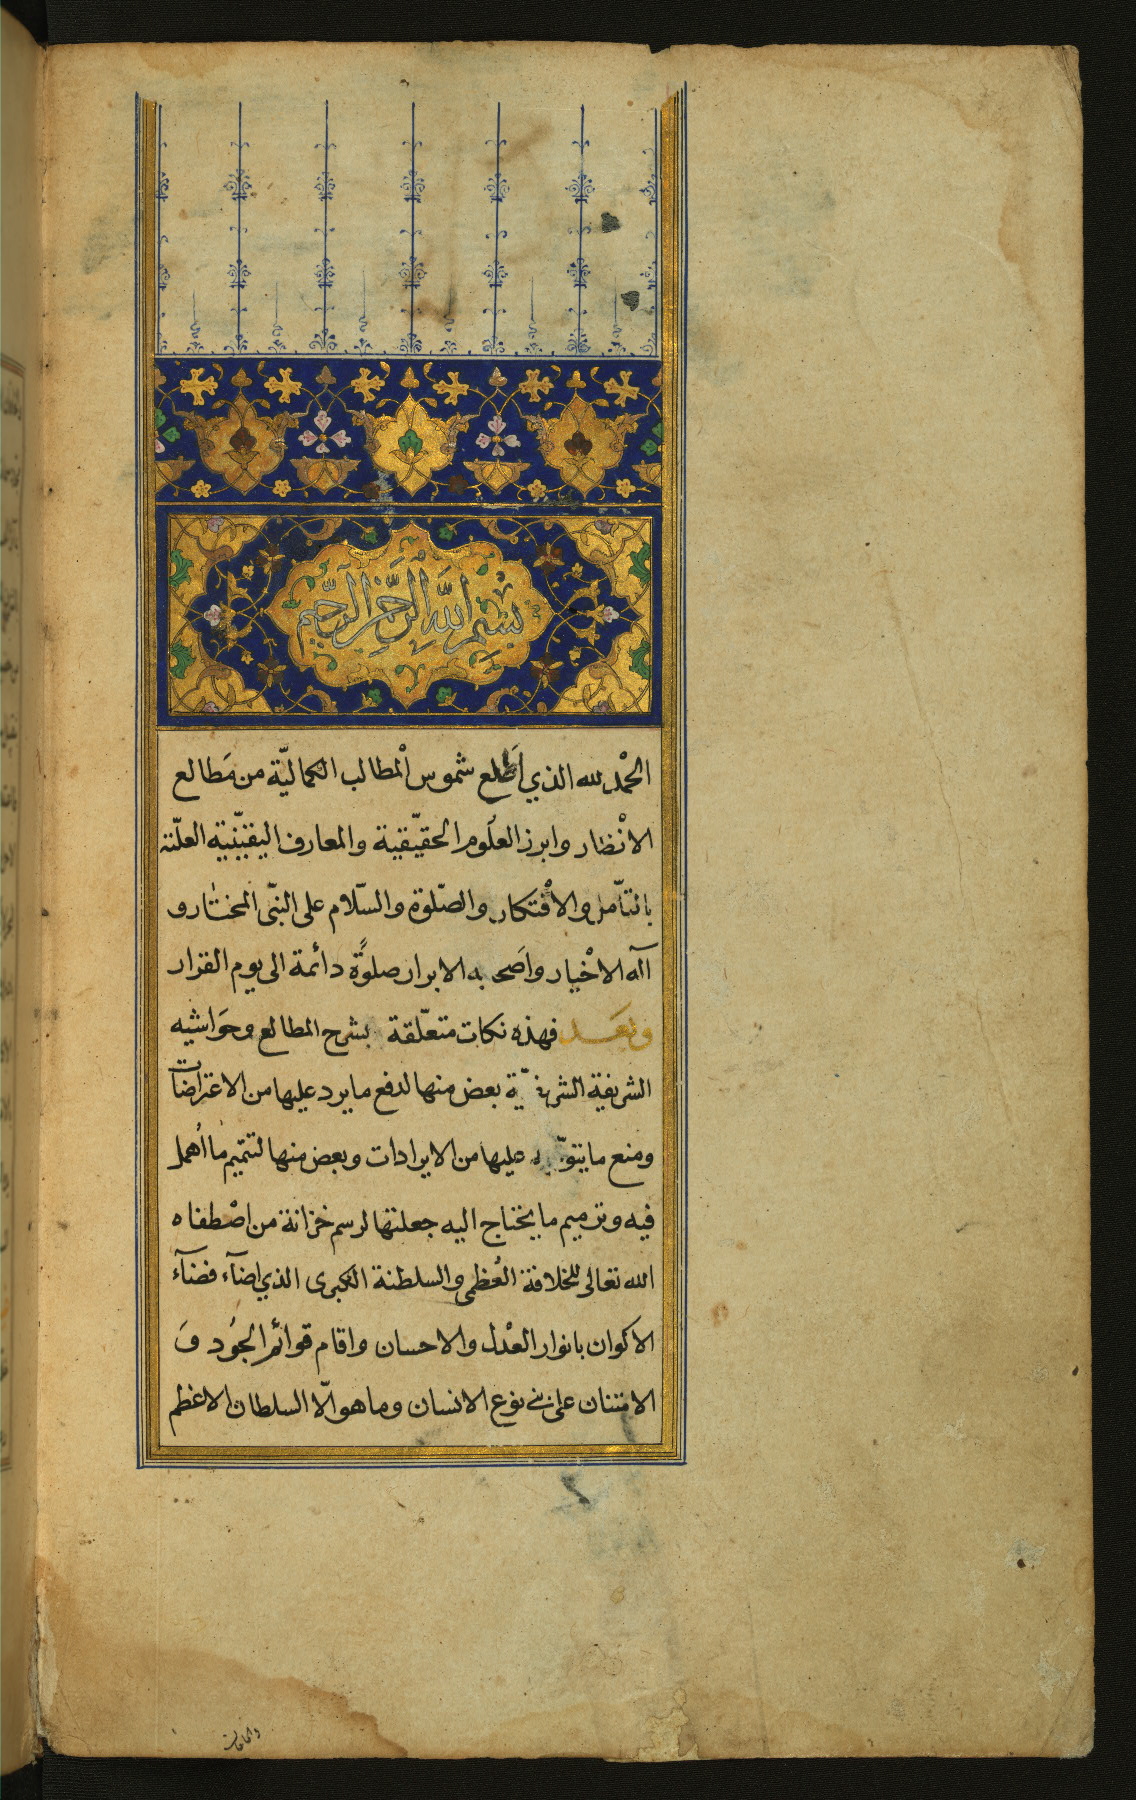 بسم الله الرحمن الرحيم
الحمْد لله الذي اَطْلع شموس الْمطالب الكماليّة من مَطالع
الانْظار وابرز العلُوم الحقيّقية والمعارف اليقيّنية
بالتأمّل والافْتكار والصّلوة والسّلام على النبّى المختار و
اله الاخْيار واَصحابه الابرار صلوةً دائمة الى يوم القرار
وبعَد فهذه نكات متعلّقة بشرح المطالع وحَواشيه
الشريفة الشريفيّة بعض منها لدفع ما يرد عليها من الاعتراضات
ومنع ما يتوّجه عليها من الايرادات وبعض منها لتتميم ما اُهمل
فيه وترميم ما يحتاج اليه جعلتها لرسم خزانة من اصْطفاه
الله تعالى للخلافة العُظمى والسلطنة الكبرى الذي اضآء فضآء
الاكوان بانوار العدْل والاحسان واقام قوائم الجوُد وَ
الامتنان على بني نوع الانسان وما هو الّا السلطان الاعظم